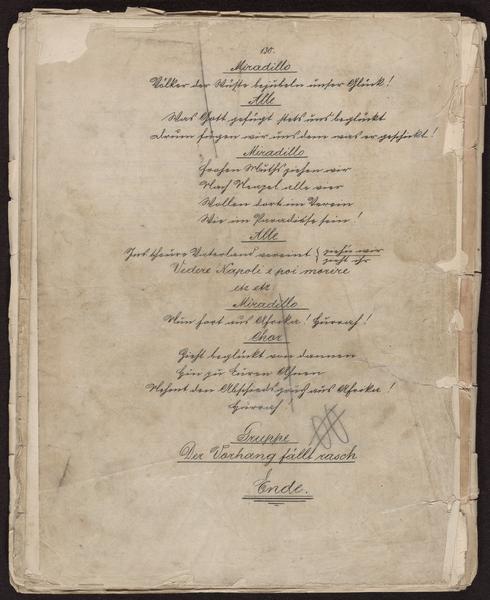 130.
Miradillo
Völker der Wüste bejubeln unser Glück!
Alle
Was Gott gefügt stets uns beglückt
Drum fügen wir uns dem was er geschickt!
Miradillo
Frohen Muths ziehen wir
Nach Neapel alle vier
Wollen dort im Verein
Wie im Paradiese sein!
Alle
Ins theure Vaterland vereint { ziehn wir
zieht ihr
Vedere Napoli e poi morire
etc etc
Miradillo
Nun fort aus Afrika! Hurrah!
Chor
Zieht beglückt von dannen
Hin zu Euren Ahnen
Nehmt den Abschiedsgruß aus Afrika!
Hurrah
Gruppe
Der Vorhang fällt rasch
Ende.